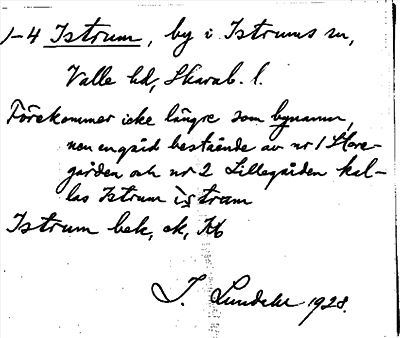 1-4 Istrum, by i Istrums sn,
Valle hd, Skarab. l.
Förekommer icke längre som bynamn,
men en gård bestående av nr 1 Store-
gården och nr 2 Lillegården kal-
las Istrum ìstrum
Istrum bek, ek, Kb
J. Lundahl 1928.